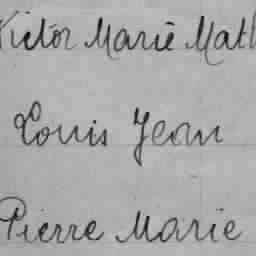 Victor Marie Math
Louis Jean
Pierre Marie